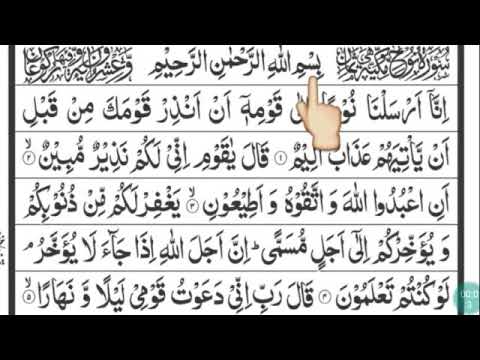 بِسْمِ اللهِ الرَّحْمٰنِ الرَّحِيْمِ
اِنَّاۤ اَرْسَلْنَا نُوْحًا اِلٰى قَوْمِهٖۤ اَنْ اَنْذِرْ قَوْمَكَ مِنْ قَبْلِ
اَنْ يَّاْتِيَهُمْ عَذَابٌ اَلِيْمٌ ۝۱ قَالَ يٰقَوْمِ اِنِّىْ لَكُمْ نَذِيْرٌ مُّبِيْنٌ ۝۲ۙ
اَنِ اعْبُدُوا اللهَ وَ اتَّقُوْهُ وَ اَطِيْعُوْنِ ۝۳ۙ يَغْفِرْ لَكُمْ مِّنْ ذُنُوْبِكُمْ
وَ يُؤَخِّرْكُمْ اِلٰۤى اَجَلٍ مُّسَمًّىؕ اِنَّ اَجَلَ اللهِ اِذَا جَآءَ لَا يُؤَخَّرُ ۘ
لَوْ كُنْتُمْ تَعْلَمُوْنَ ۝۴ قَالَ رَبِّ اِنِّىْ دَعَوْتُ قَوْمِىْ لَيْلًا وَّ نَهَارًا ۝۵ۙ